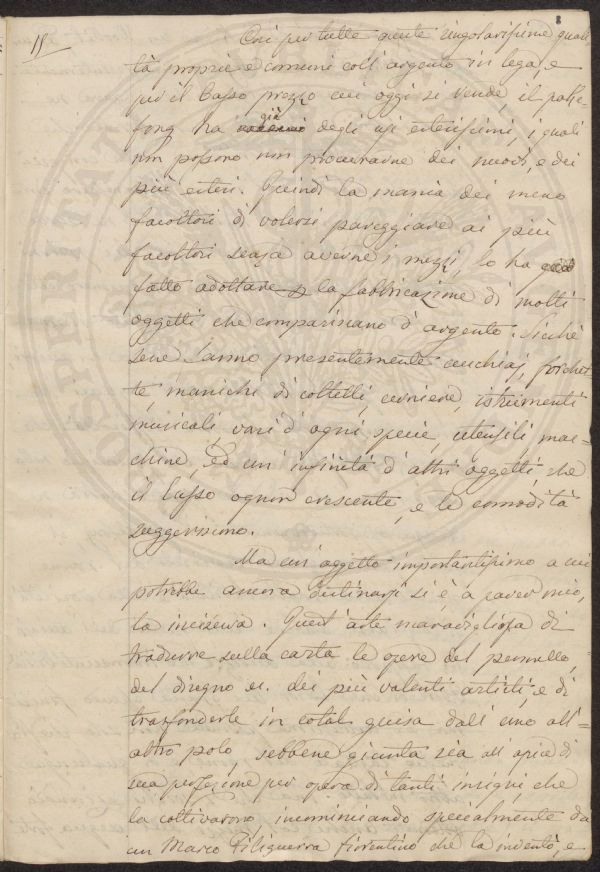 8
15
Così per tutte queste singolarissime quali-
tà proprie e comuni coll' argento in lega, e
per il basso prezzo cui oggi si vende il pack-
fong ha già degli usi estesissimi, i quali
non possono non procurarne dei nuovi, e dei
più esteri. Quindi la mania dei meno
facoltosi di volersi pareggiare ai più
facoltosi senza averne i mezzi, lo ha
fatto adottare la fabbricazione di molti
oggetti che compariscano d' argento. Sicchè
sene fanno presentemente cucchiaj, forchet-
te, maniche di coltelli, cerniere, istrumenti
musicali, vasi d' ogni specie, utensili, mac-
chine, ed un' infinità d' altri oggetti, che
il lusso ognor crescente, e le comodità
suggeriscono.
Ma un' oggetto importantissimo a cui
potrebbe ancora destinarsi si è, a parer mio,
la incisione. Quest' arte maravigliosa di
tradurre sulla carta le opere del pennello,
del disegno ec. dei più valenti artisti, e di
trasfonderle in cotal guisa dall' uno all'
altro polo, sebbene giunta sia all' apice di
sua perfezione per opera di tanti insigni, che
la coltivarono, incominciando specialmente da
un Marco Filiguerra fiorentino che la inventò, e